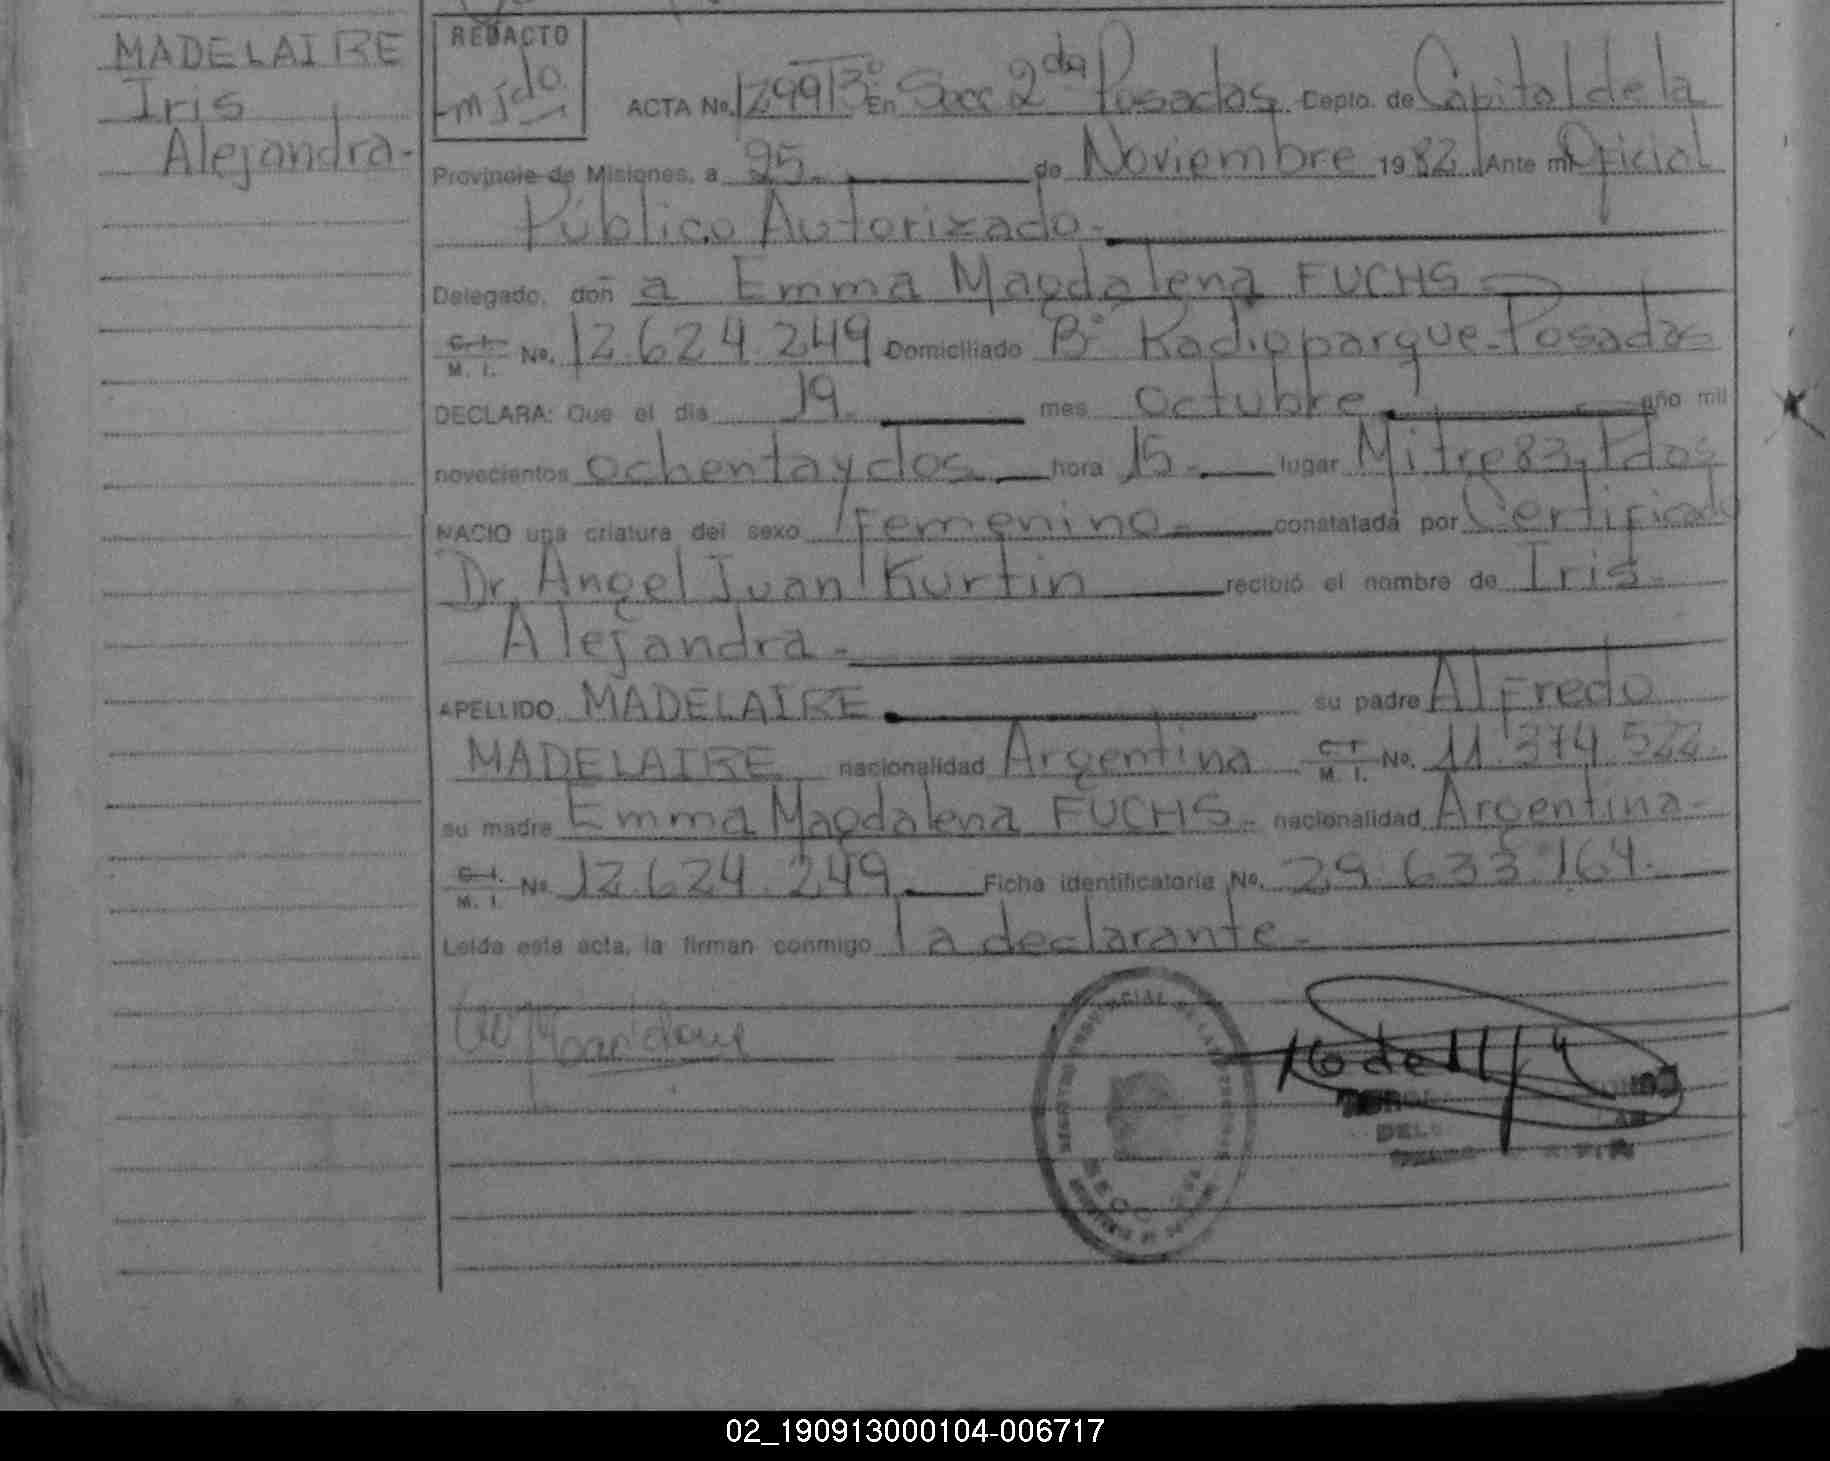 MADELAIRE
Iris
Alejandra-
REDACTO
mjdo
ACTA No. 12991 3º En Secc 2da Posadas Depto. de Capital de la
Provincia de Misiones, a 25. de Noviembre 1982 Ante mi Oficial
Público Autorizado.-
Delegado, doñ a Emma Magdalena FUCHS
C. I. M. I. No. 12.624.249 Domiciliado Bº Radioparque-Posadas
DECLARA: Que el día 19. mes octubre año mil
novecientos ochenta y dos hora 15.- lugar Mitre 83, Pdas
NACIO una criatura del sexo femenino- constatada por Certificado
Dr. Angel Juan Kurtin recibió el nombre de Iris
Alejandra-
APELLIDO MADELAIRE su padre Alfredo
MADELAIRE nacionalidad Argentina C. I. M. I. No. 11.374.522-
su madre Emma Magdalena FUCHS- nacionalidad Argentina-
C. I. M. I. No. 12.624.249. Ficha identificatoria No. 29.633.164.
Leída esta acta, la firman conmigo la declarante-
02_190913000104-006717